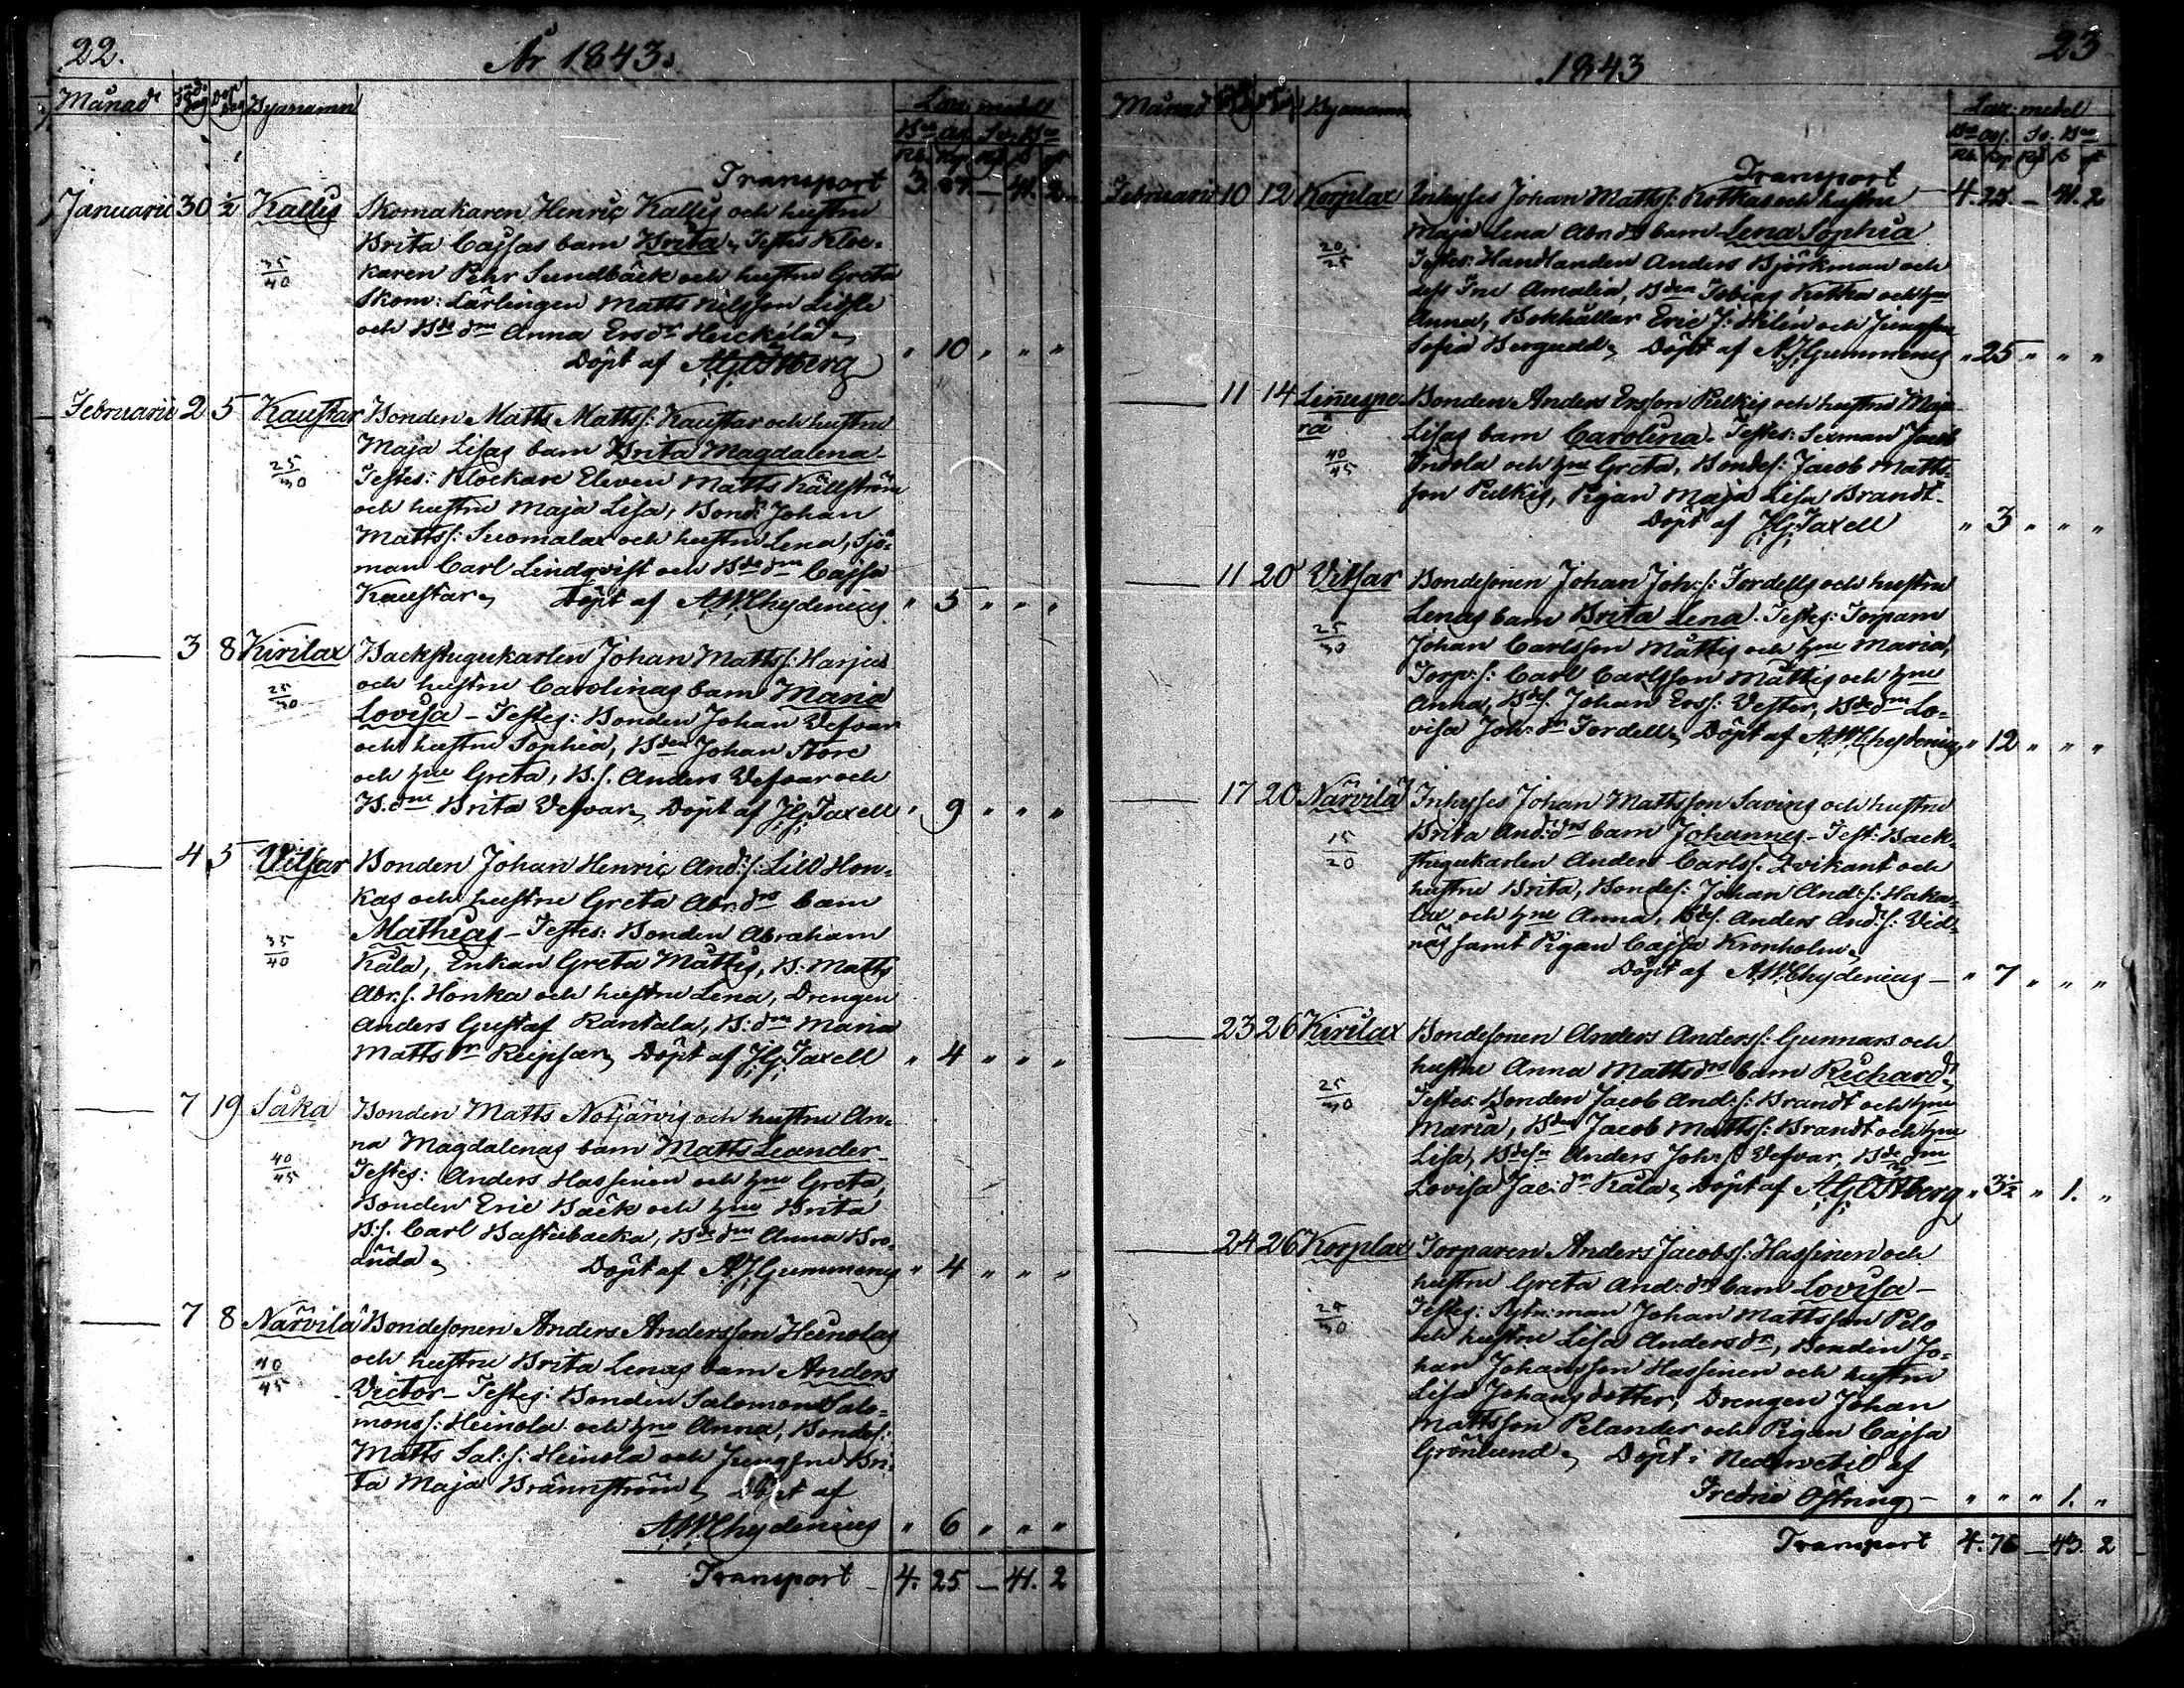 22.
År 1843.
Månad Föd. dag Döp dag Byanamn
Lön medel
Bco Ass. Sv. Bco
Rb. Kop. Rd ß rst
Transport 3. 87. — 41. 2
Januarii 30 1/2 Kallis Skomakaren Henric Kallis och hustru
Brita Cajsas barn Brita, Testes Kloc-
35/40
karen Pehr Sundbäck och hustru Greta
Skom: Lärlingen Matts Nilsson Lissle
och Bdedrn Anna Ersdr Heickilä
Döpt af A.G. Östberg " 10 " " "
Februarii 2 5 Kaustar Bonden Matts Mattss: Kaustar och hustru
Maja Lisas barn Brita Magdalena
25/30
Testes: Klockare Eleven Matts Källström
och hustru Maja Lisa, Bond: Johan
Mattss: Suomalax och hustru Lena, Sjö-
man Carl Lindqvist och Bdedrn Cajsa
Kaustar, Döpt af A.W. Chydenius " 5 " " "
3 8 Kirilax Backstugukarlen Johan Mattss: Harjus
och hustru Carolinas barn Maria
25/30
Lovisa – Testes: Bonden Johan Vefvar
och hustru Sophia, Bden Johan Store
och hru Greta, B.s. Anders Vefvar och
B.drn Brita Vefvar, Döpt af J.G. Taxell " 9 " " "
4 5 Vitsar Bonden Johan Henric And:s: Lill Hon-
kas och hustru Greta Abr.drs barn
35/40
Mathias – Testes: Bonden Abraham
Kåla, Enkan Greta Mattis, B. Matts
Abr.s. Honka och hustru Lena, Drengen
Anders Gustaf Rantala, B:drn Maria
Matts dr Reipsar, Döpt af J.G. Taxell " 4 " " "
7 19 Såka Bonden Matts Notjärvis och hustru An-
na Magdalenas barn Matts Leander
40/45
Testes: Anders Hassinen och hru Greta,
Bonden Eric Back och hru Brita
B.s. Carl Bastubacka, Bdedrn Anna Bro-
ända, Döpt af A.J. Gummerus " 4 " " "
7 8 Närvilä Bondesonen Anders Andersson Heinolas
och hustru Brita Lenas barn Anders
40/45
Victor – Testes: Bonden Salomon Salo-
monss: Heinola och hru Anna, Bondes:
Matts Sal:s. Heinola och Jungfru Bri-
ta Maja Brännström, Döpt af
A.W. Chydenius " 6 " " "
Transport – 4. 25 – 41. 2
23
1843
Månad Byanamn
Lön medel
Bco Ass. Sv. Bco
Rb. Kop. Rd ß rst
Transport
Februarii 10 12 Korplax Inhyses Johan Mattss: Kotkas och hustru – 4. 25. – 41. 2
Maja Lena Abr.drs barn Lena Sophia
20/25
Testes: Handlanden Anders Björkman och
dess Fru Amalia, Bden Tobias Kotka och hru
Anna, Bokhållar Eric J. Hilén och Jungfru
Sofia Bergudd, Döpt af A.J. Gummerus " 25 " " "
11 14 Linnuspe- Bonden Anders Ersson Pulkis och hustru Maja
rä Lisas barn Carolina. Testes: Sexman Jacob
40/45
Indola och hru Greta, Bondes: Jacob Matts-
son Pulkis, Pigan Maja Lisa Brandt
Döpt af J.G. Taxell " 3 " " "
11 20 Vitsar Bondesonen Johan Joh:s: Tordells och hustru
Lenas barn Brita Lena. Testes: Torparn
25/30
Johan Carlsson Mattis och hru Maria,
Torp.s: Carl Carlsson Mattis och hru
Anna, Bdes. Johan Erss: Vester, Bdedrn Lo-
visa Joh.dr Tordell, Döpt af A.W. Chydenius " 12 " " "
17 20 Närvilä Inhyses Johan Mattsson Savins och hustru
Brita And:drs barn Johannes – Test: Back-
15/20
stugukarlen Anders Carlss. Qvikant och
hustru Brita, Bondes: Johan And:s: Haka-
lax och hru Anna, Bdes. Anders And:s: Vid-
näs samt Pigan Cajsa Kronholm
Döpt af A.W. Chydenius – " 7 " " "
23 26 Kirilax Bondesonen Anders Anderss: Gunnars och
hustru Anna Mattsdrs barn Richard,
25/30
Testes: Bonden Jacob And.s: Brandt och hru
Maria, Bden Jacob Mattss: Brandt och hru
Lisa, Bdesn Anders Joh.s: Vefvar, Bdedrn
Lovisa Jac:dr Kåla, Döpt af A.G. Östberg " 3 1/2 " 1. "
24 26 Korplax Torparen Anders Jacobss: Hassinen och
hustru Greta And:drs barn Lovisa –
24/30
Testes: man Johan Mattsson Pelo
och hustru Lisa Andersdr, Bonden Jo-
han Johansson Hassinen och hustru
Lisa Johansdotter, Drengen Johan
Mattsson Pelander och Pigan Cajsa
Grönlund, Döpt i Nedervetil af
Fredric Östring – " " " 1. "
Transport 4. 76 – 43. 2